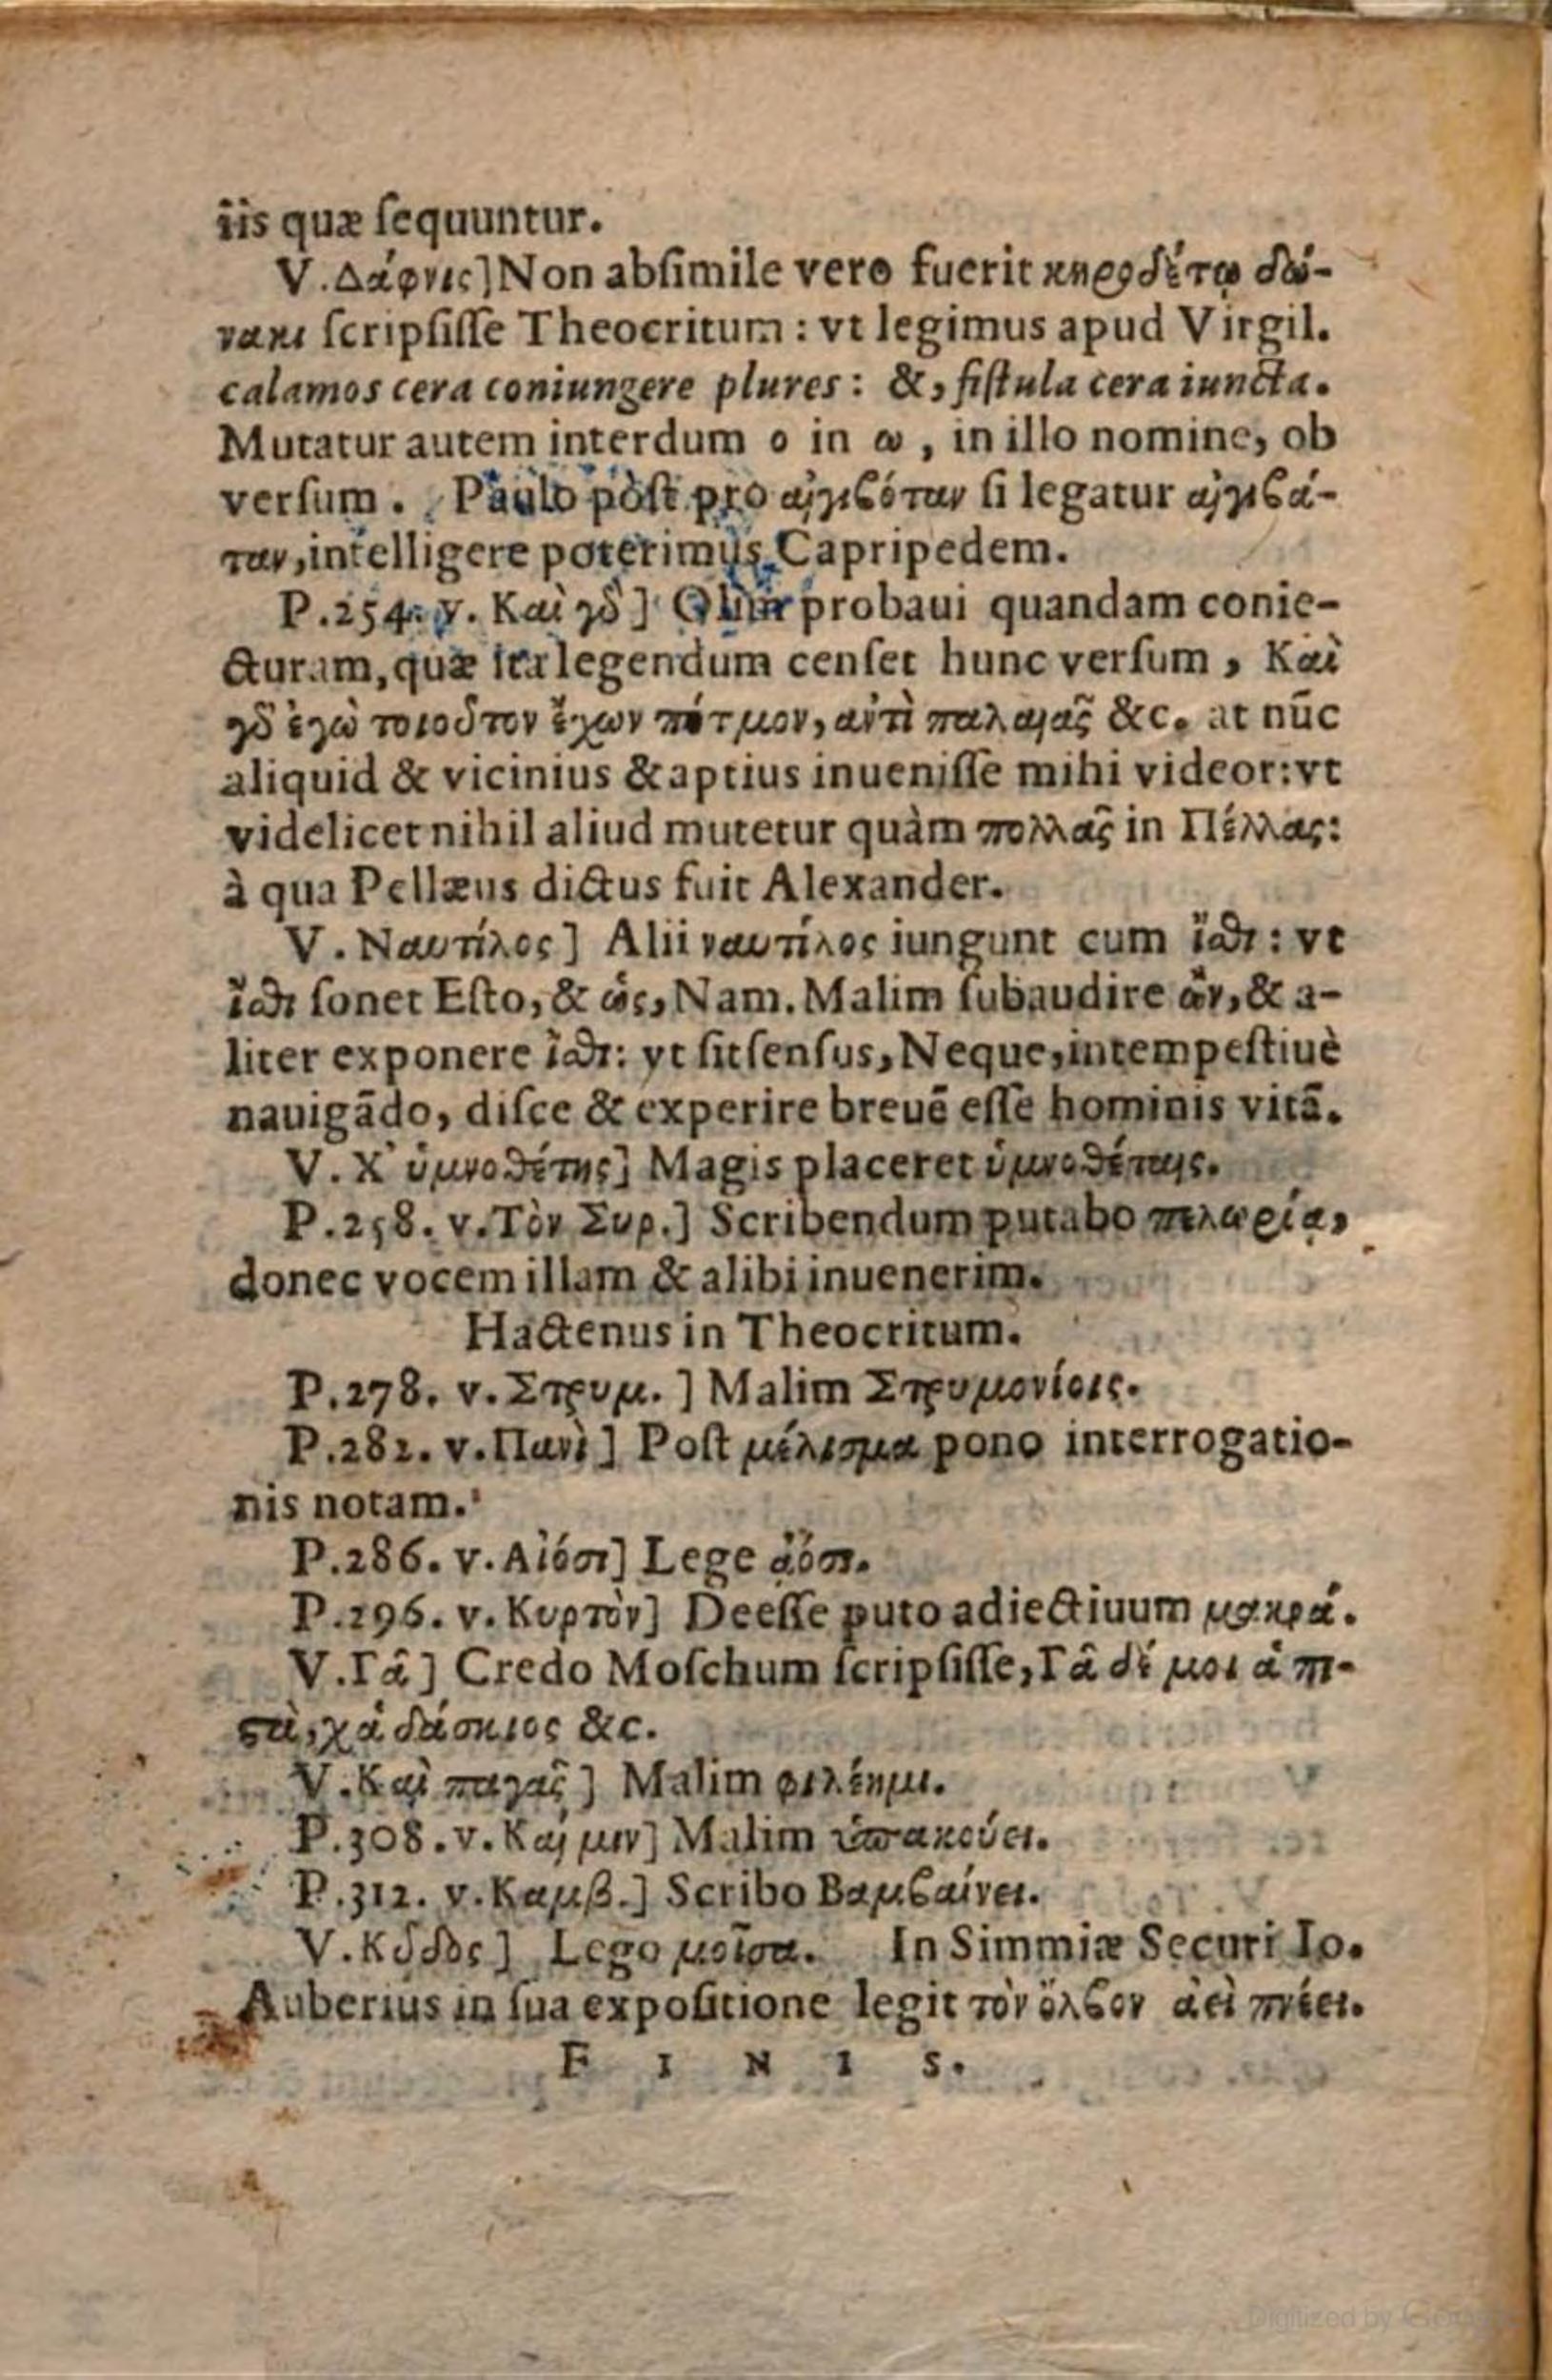 iis quæ ſequuntur.
V.Δάφνις] Non abſimile vero fuerit κηροδέτῳ δώ-
νακι ſcripſiſſe Theocritum : vt legimus apud Virgil.
calamos cera coniungere plures : &, fiſtula cera iuncta.
Mutatur autem interdum ο in ω , in illo nomine, ob
verſum . Paulo pòſt pro αἰγιβόταν ſi legatur αἰγιβά-
ταν, intelligere poterimus Capripedem.
P.254. v. Καὶ γὸ] Olim probaui quandam conie-
cturam, quæ ita legendum cenſet hunc verſum , Καὶ
γὸ ἐγὼ τοιοῦτον ἔχων πότμον, ἀντὶ παλαιᾶς &c. at nūc
aliquid & vicinius & aptius inueniſſe mihi videor: vt
videlicet nihil aliud mutetur quàm πολλᾶς in Πέλλας:
à qua Pellæus dictus fuit Alexander.
V. Ναυτίλος] Alii ναυτίλος iungunt cum ἴσθι : vt
ἴσθι ſonet Eſto, & ὡς, Nam. Malim ſubaudire ὢν, & a-
liter exponere ἴσθι: vt ſit ſenſus, Neque, intempeſtiuè
nauigādo, diſce & experire breuē eſſe hominis vitā.
V. Χ᾽ ὑμνοθέτης] Magis placeret ὑμνοθέταις.
P.258. v. Τὸν Συρ.] Scribendum putabo πελωρίᾳ,
donec vocem illam & alibi inuenerim.
Hactenus in Theocritum.
P.278. v. Στρυμ. ] Malim Στρυμονίοις.
P.282. v. Πανὶ] Poſt μέλισμα pono interrogatio-
nis notam.
P.286. v. Αἰόσι] Lege ᾀόσι.
P.296. v. Κυρτὸν] Deeſſe puto adiectiuum μακρά.
V. Γᾶ] Credo Moſchum ſcripſiſſe, Γᾶ δέ μοι ἁ πι-
στὰ, χἁ δάσκιος &c.
V. Καὶ παγᾶς] Malim φιλέημι.
P.308. v. Καί μιν] Malim ὑπακούει.
P.312. v. Καμβ.] Scribo Βαμβαίνει.
V. Κοῦδος] Lego μοῖσα. In Simmiæ Securi Io.
Auberius in ſua expoſitione legit τὸν ὄλβον ἀεὶ πνέει.
F I N I S.
Digitized by Google